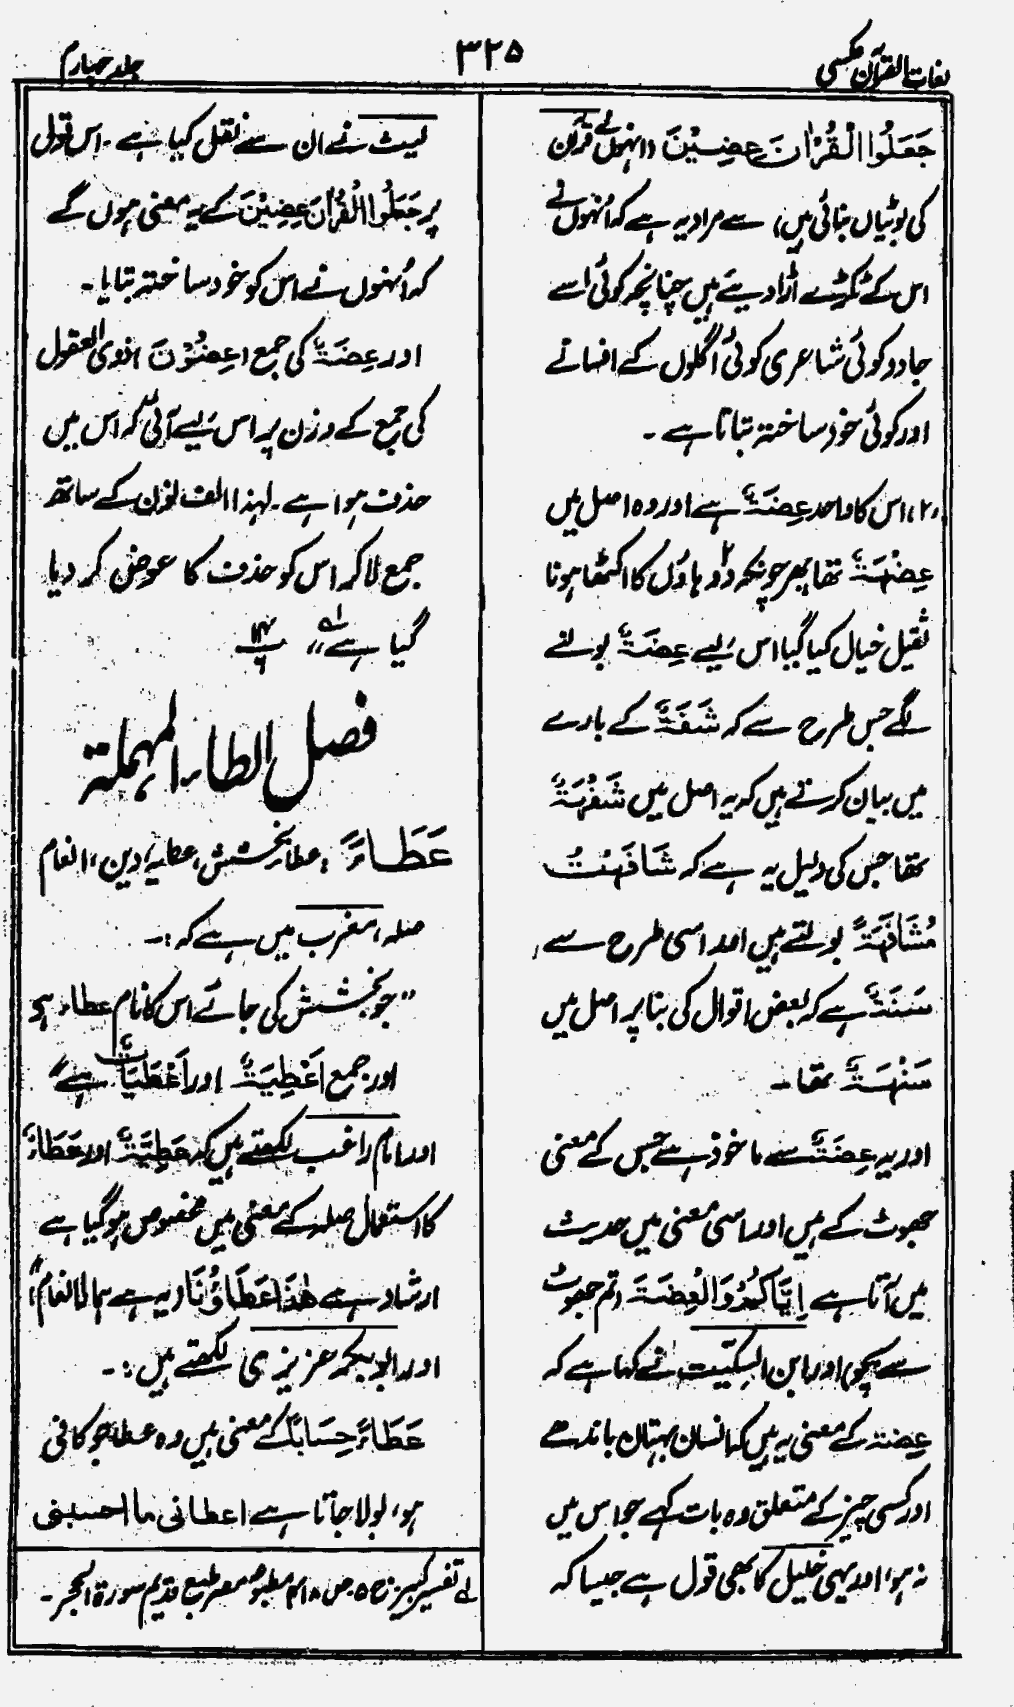 لغات القرآن عکسی
۳۲۵
جلد چہارم
جَعَلُوا الْقُرْاٰنَ عِضِیْنَ (انہوں نے قرآن
کی بوٹیاں بنائی ہیں) سے مراد یہ ہے کہ اُنہوں نے
اس کے ٹکڑے اڑا دیئے ہیں چنانچہ کوئی اسے
جادو کوئی شاعری کوئی اگلوں کے افسانے
اور کوئی خود ساختہ بتاتا ہے ۔
(۲) اس کا واحد عِضَةٌ ہے اور وہ اصل میں
عِضْهَةٌ تھا پھر چونکہ دو ہاؤں کا اکٹھا ہونا
ثقیل خیال کیا گیا اس لیے عِضَةٌ بولنے
لگے جس طرح سے کہ شَفَةٌ کے بارے
میں بیان کرتے ہیں کہ یہ اصل میں شَفْهَةٌ
تھا جس کی دلیل یہ ہے کہ شَافَهْتُ
مُشَافَهَةً بولتے ہیں اور اسی طرح سے
سَنَةٌ ہے کہ بعض اقوال کی بنا پر اصل میں
سَنْهَةٌ تھا ۔
اور یہ عِضَةٌ سے ماخوذ ہے جس کے معنی
جھوٹ کے ہیں اور اسی معنی میں حدیث
میں آتا ہے اِیَّاکُمْ وَالْعِضَةَ (تم جھوٹ
سے بچو) اور ابن السِکّیت نے کہا ہے کہ
عِضۃ کے معنی یہ ہیں کہ انسان بہتان باندھے
اور کسی چیز کے متعلق وہ بات کہے جو اس میں
نہ ہو، اور یہی خلیل کا بھی قول ہے جیسا کہ
لیث نے ان سے نقل کیا ہے ۔ اس قول
پر جَعَلُوا الْقُرْاٰنَ عِضِیْنَ کے یہ معنی ہوں گے
کہ اُنہوں نے اس کو خود ساختہ بتایا ۔
اور عِضَةٌ کی جمع (عِضُوْنَ) ذوی العقول
کی جمع کے وزن پر اس لیے آئی کہ اس میں
حذف ہوا ہے ۔ لہذا الف نون کے ساتھ
جمع لا کر اس کو حذف کا عوض کر دیا
گیا ہے لہ ۱۴
فصل الطاء المہملة
عَطَاءً ؛ عطا، بخشش، عطیہ، دین، انعام
صلہ، مغرب میں ہے کہ :۔
"جو بخشش کی جائے اس کا نام عطاء ہے
اور جمع اَعْطِیَةٌ اور اَعْطِیَاتٌ ہے"
اور امام راغب لکھتے ہیں کہ عَطِیَّةٌ اور عَطَاءٌ
کا استعمال صلہ کے معنی میں مخصوص ہو گیا ہے
ارشاد ہے هٰذَا عَطَاؤُنَا (یہ ہے ہمارا انعام)
اور ابو بکر عزیزی لکھتے ہیں :۔
عَطَاءً حِسَابًا کے معنی ہیں وہ عطا جو کافی
ہو، بولا جاتا ہے اعطانی ما احسبنی
لے تفسیر کبیر ج ۵ ص ۴۱۸ مطبوعہ مصر طبع قدیم سورۃ الحجر ۔